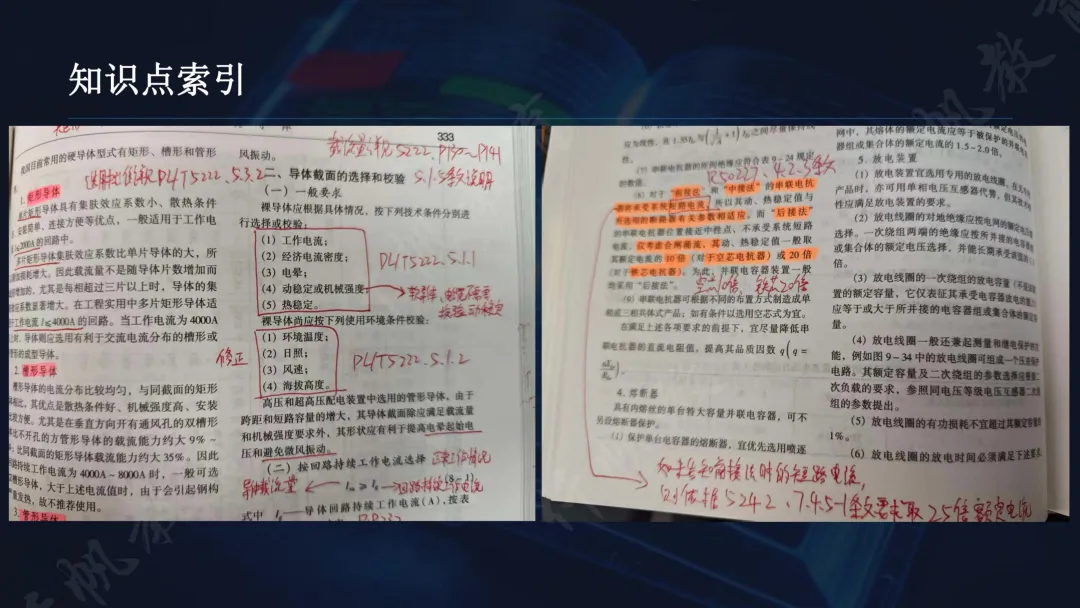 知识点索引
333
我国目前常用的硬导体型式有矩形、槽形和管形
1. 矩形导体
单片矩形导体具有集肤效应系数小、散热条件
、安装简单、连接方便等优点，一般适用于工作电
≤2000A的回路中。
多片矩形导体集肤效应系数比单片导体的大，所
损耗增大。因此载流量不是随导体片数增加而
增加的，尤其是每相超过三片以上时，导体的集
效应系数显著增大。在工程实用中多片矩形导体适
工作电流I≤4000A的回路。当工作电流为4000A
时，导体则应选用有利于交流电流分布的槽形或
形的成型导体。
2. 槽形导体
槽形导体的电流分布比较均匀，与同截面的矩形
相比，其优点是散热条件好、机械强度高、安装
比较方便。尤其是在垂直方向开有通风孔的双槽形
体比不开孔的方管形导体的载流能力约大9%～
；比同截面的矩形导体载流能力约大35%。因此
回路持续工作电流为4000A～8000A时，一般可选
槽形导体，大于上述电流值时，由于会引起钢构
严重发热，故不推荐使用。
3. 管形导体
选用比依据DL/T5222、5.3.2
修正
风振动。
载流量、见5222、P137～P141
二、导体截面的选择和校验
5.1.5条文说明
（一）一般要求
裸导体应根据具体情况，按下列技术条件分别进
行选择或校验：
（1）工作电流；
（2）经济电流密度；
（3）电晕；
（4）动稳定或机械强度；
（5）热稳定。
DL/T5222.5.1.1
裸导体尚应按下列使用环境条件校验：
（1）环境温度；
（2）日照；
（3）风速；
（4）海拔高度。
DL/T5222.5.1.2
高压和超高压配电装置中选用的管形导体，由于
跨距和短路容量的增大，其导体截面除应满足载流量
和机械强度要求外，其形状应有利于提高电晕起始电
压和避免微风振动。
（二）按回路持续工作电流选择
正常工作情况
导体载流量
回路持续工作电流
式中 I——导体回路持续工作电流（A），按表
性。
（7）串联电抗器的所间绝缘应符合表9－24规定
的数值。
R50227、4.2.3条文
（8）对于“前接法”和“中接法”的串联电抗
器将承受系统短路电流，所以其动、热稳定值与
所选用的断路器有关参数相适应。而“后接法”
的串联电抗器位置接近中性点，不承受系统短路
电流，仅考虑合闸涌流，其动、热稳定值一般取
其额定电流的10倍（对于空芯电抗器）或20倍
（对于铁芯电抗器）。为此，并联电容器装置一般
地采用“后接法”。
空芯10倍、铁芯20倍
（9）串联电抗器可根据不同的布置方式制造成单
相或三相共体式产品；如有条件以选用空芯式为宜。
在满足上述各项要求的前提下，宜尽量降低串
联电抗器的直流电阻值，提高其品质因数 q(q=
4. 熔断器
具有内熔丝的单台特大容量并联电容器，可不
另设熔断器保护。
（1）保护单台电容器的熔断器，宜优先选用喷逐
网中，其熔体的额定电流应等于被保护的并联电
器组或集合体的额定电流的1.5-2.0倍。
5. 放电装置
（1）放电装置宜选用专用的放电线圈，在无专
产品时，亦可用单相电压互感器代替，但其技术特
性应满足放电装置的要求。
（2）放电线圈的对地绝缘应按电网的额定电压
选择。一次绕组两端的绝缘应按所并接的电容器组
或集合体的额定电压选择，并能长期承受该
（3）放电线圈的一次绕组的放电容量（不是该装
置的额定容量，它仅表征其承受电容器盘电的能力）
应等于或大于所并接的电容器组或集合体的容
量。
（4）放电线圈一般还兼起测量和继电保护的功
能，例如图9－34中的放电线圈可组成一个压差保护
电路。其额定容量及二次绕组的参数选择应根据二
次负载的要求，参照同电压等级电压互感器二次绕
组的参数提出。
（5）放电线圈的有功损耗不宜超过其额定容量的
1%。
（6）放电线圈的放电时间必须满足下述要求
如未告知前接法时的短路电流，
可依据5242、7.4.5-1条文要求取25倍额定电流